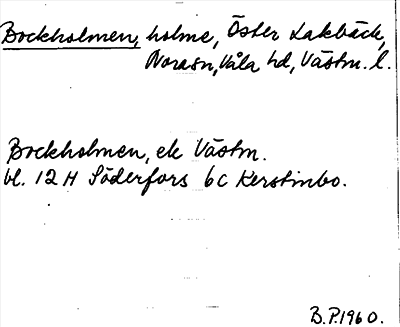 Bockholmen, holme, Öster Lakbäck,
Norasn, Våla hd, Västm. l.
Bockholmen, ek Västm.
bl. 12 H Söderfors 6 c Kerstinbo.
B.P. 1960.